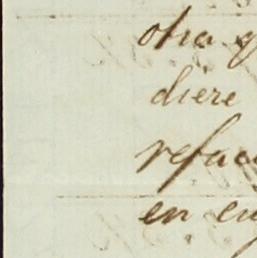 otra q
diere
refac
en cu